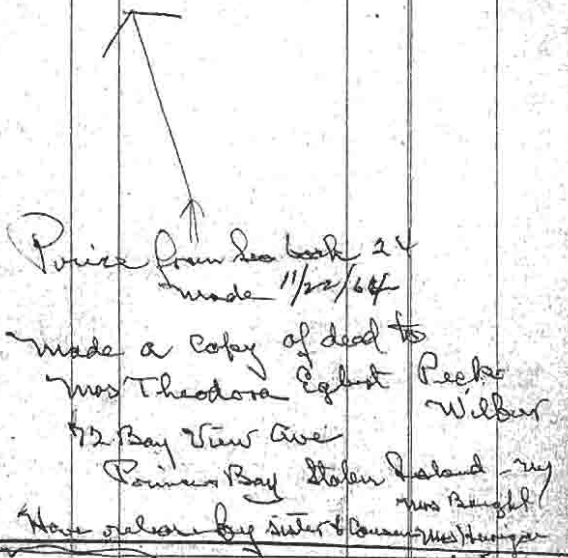 from book 24
made 11/22/64
made a copy of deed to
Mrs Theodora Egbert Pecks
Wilbur
72 Bay View Ave
Princes Bay Staten Island - NY
Mrs
Have release by sister & Cousin Mrs